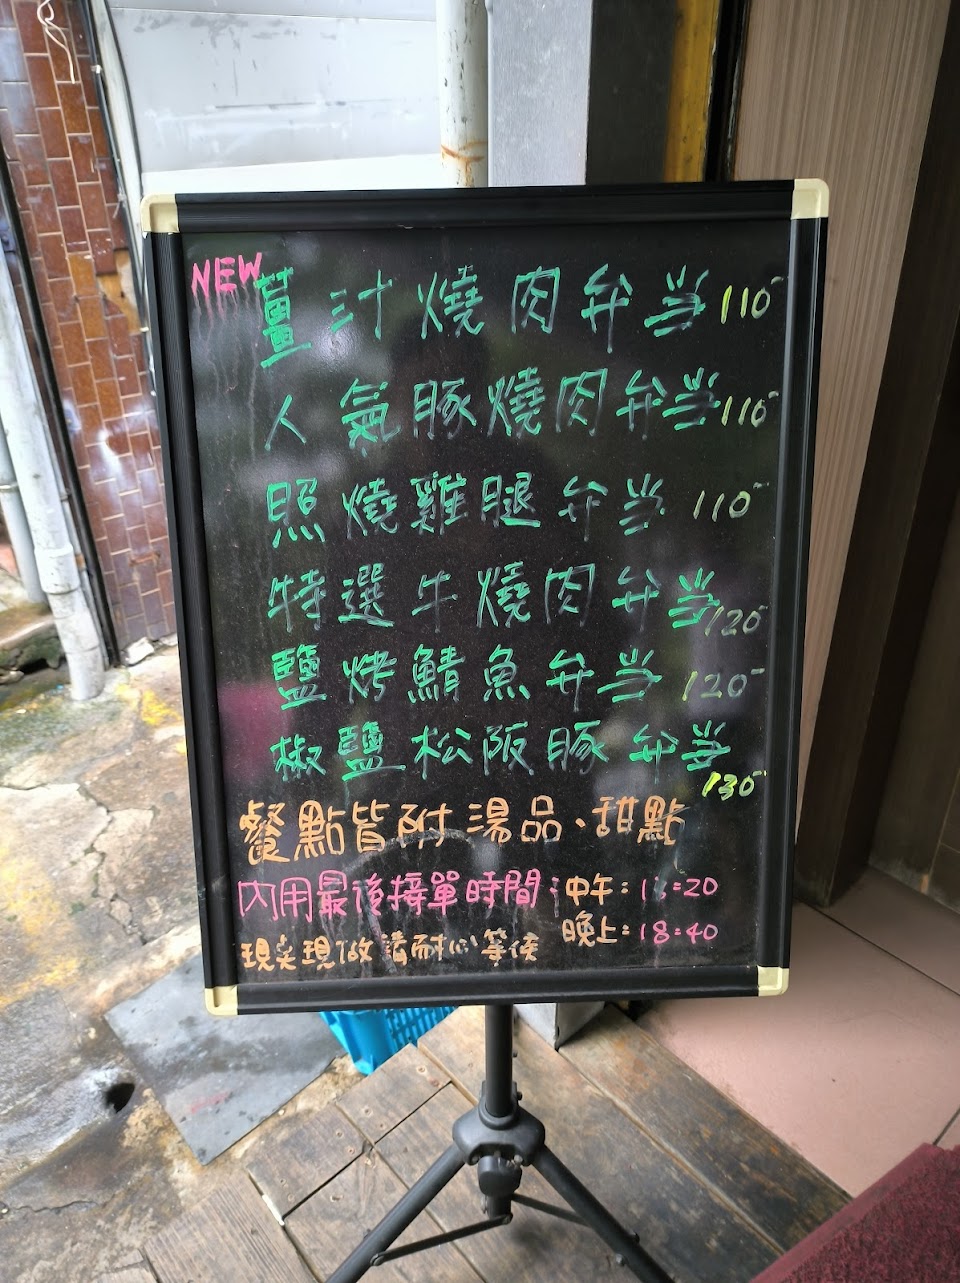 NEW
薑汁燒肉弁当110-
人氣豚燒肉弁当110-
照燒雞腿弁当 110-
特選牛燒肉弁当120-
鹽烤鯖魚弁当 120-
椒鹽松阪豚弁当130-
餐點皆附湯品、甜點
內用最後接單時間:中午: :20
晚上:18:40
現點現做 請耐心等候